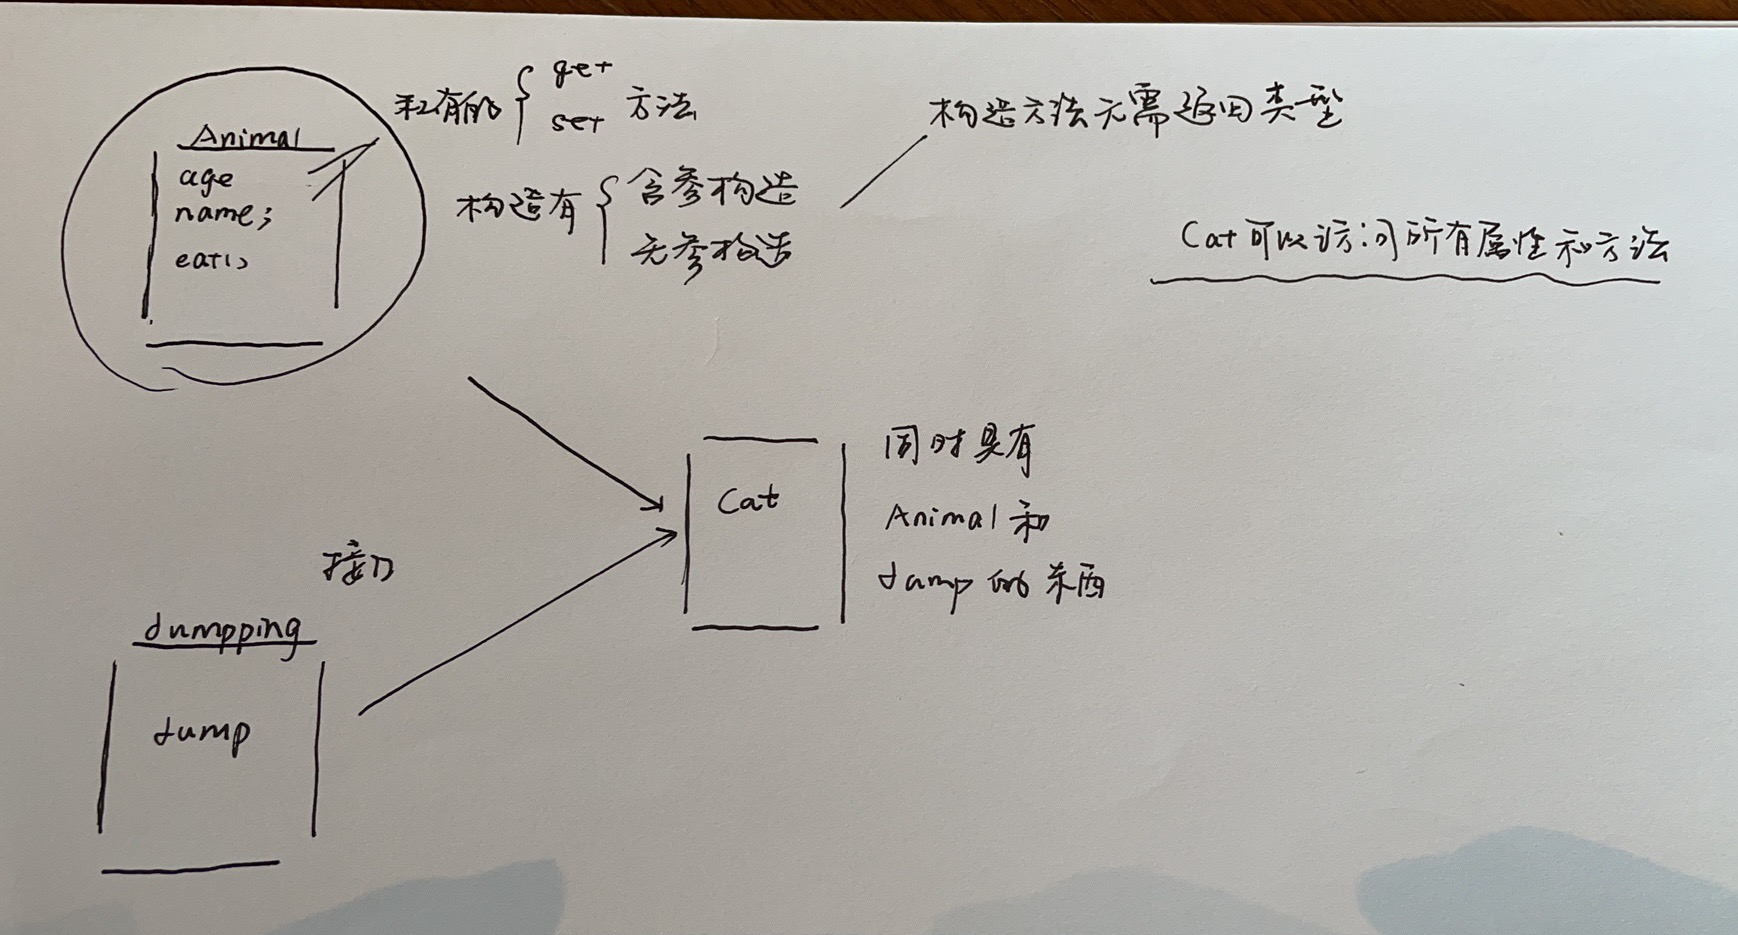 Animal
age
name;
eat();
私有的 { get set 方法
构造有 { 含参构造 无参构造
构造方法无需返回类型
Cat可以访问所有属性和方法
Cat
同时具有
Animal 和
dump 的东西
接口
dumpping
dump